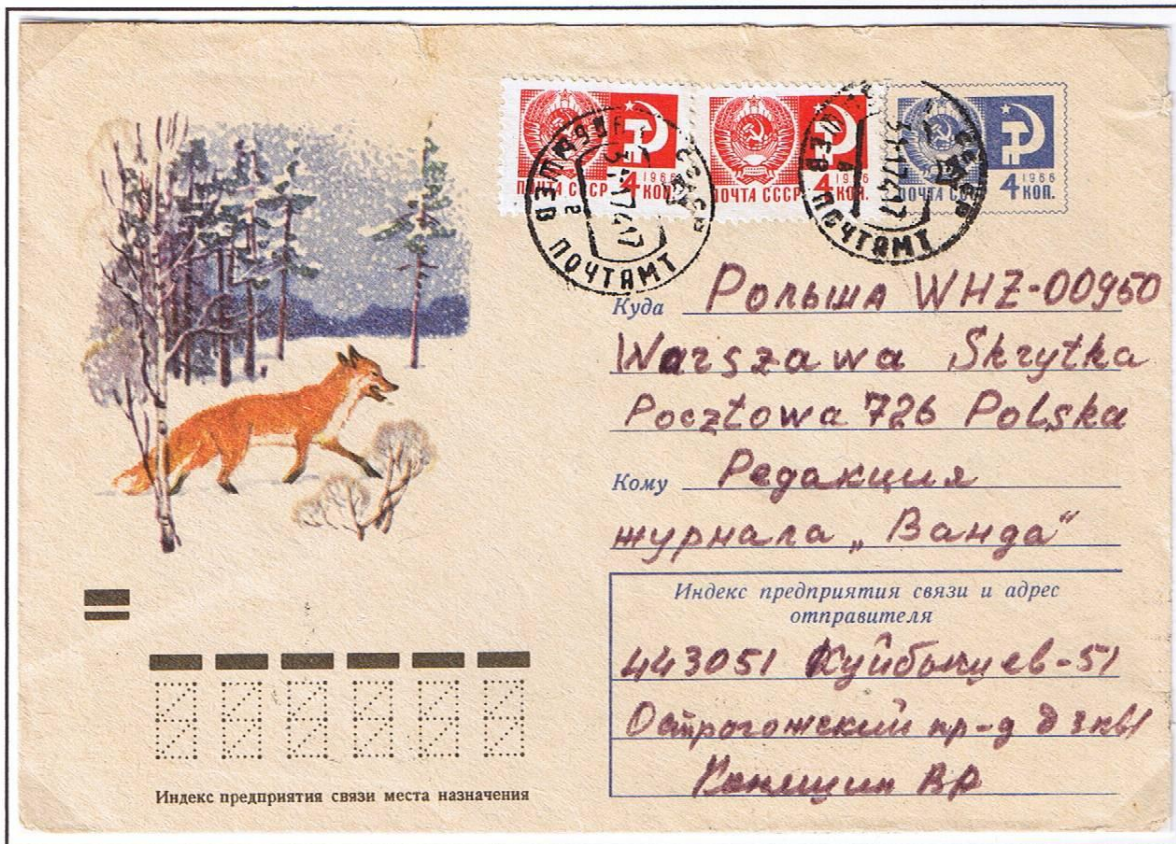 1966
ПОЧТА СССР 4 КОП.
1966
ПОЧТА СССР 4 КОП.
1966
ПОЧТА СССР 4 КОП.
ПОЧТАМТ
ПОЧТАМТ
Куда Польша WHZ-00950
Warszawa Skrytka
Pocztowa 726 Polska
Кому Редакция
журнала „Ванда“
Индекс предприятия связи и адрес
отправителя
443051 Куйбышев-51
Острогожский пр-д д 3 кв1
Индекс предприятия связи места назначения